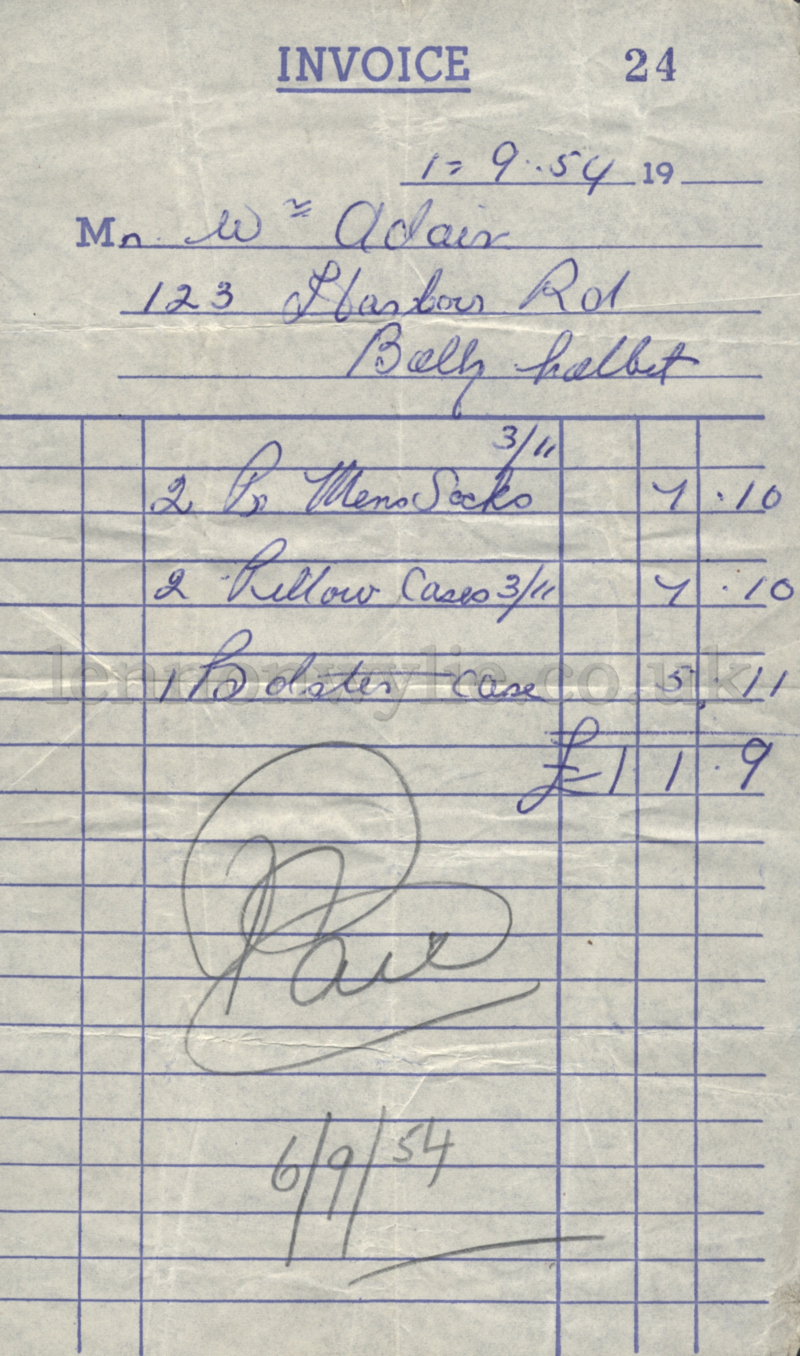 INVOICE 24
1= 9.54 19
Mr. Wm Adair
123 Harbour Rd
Bally halbert
3/11
2 Pr Mens Socks 7.10
2 Pillow Cases 3/11 7.10
lennonwylie.co.uk
1 Bolster case 5.11
£1 1.9
Paid
6/9/54